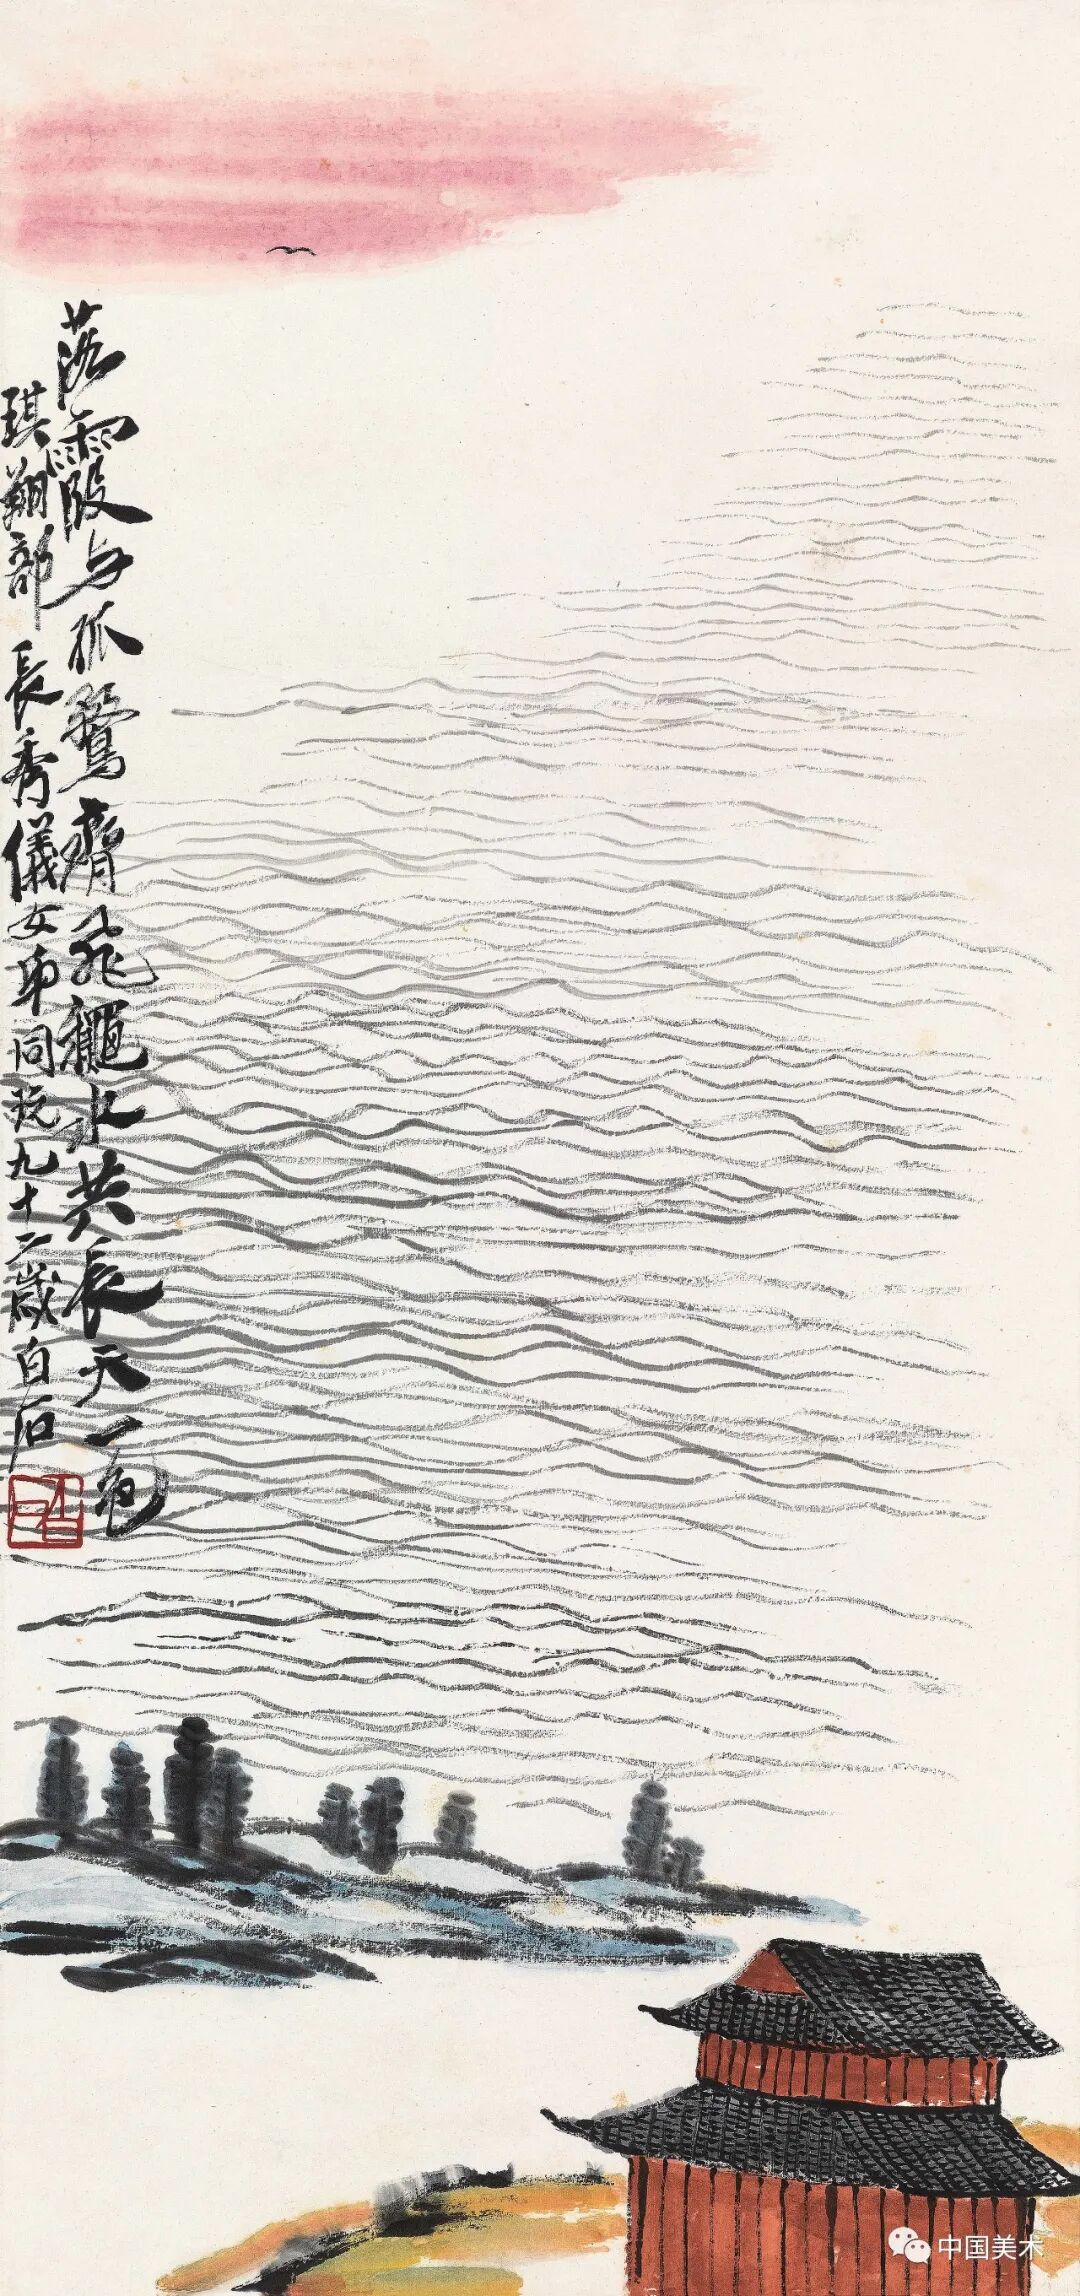 落霞与孤鶩齊飛龝水共長天一色
琪翔部長秀儀女弟同玩九十二歲白石
白石
中国美术